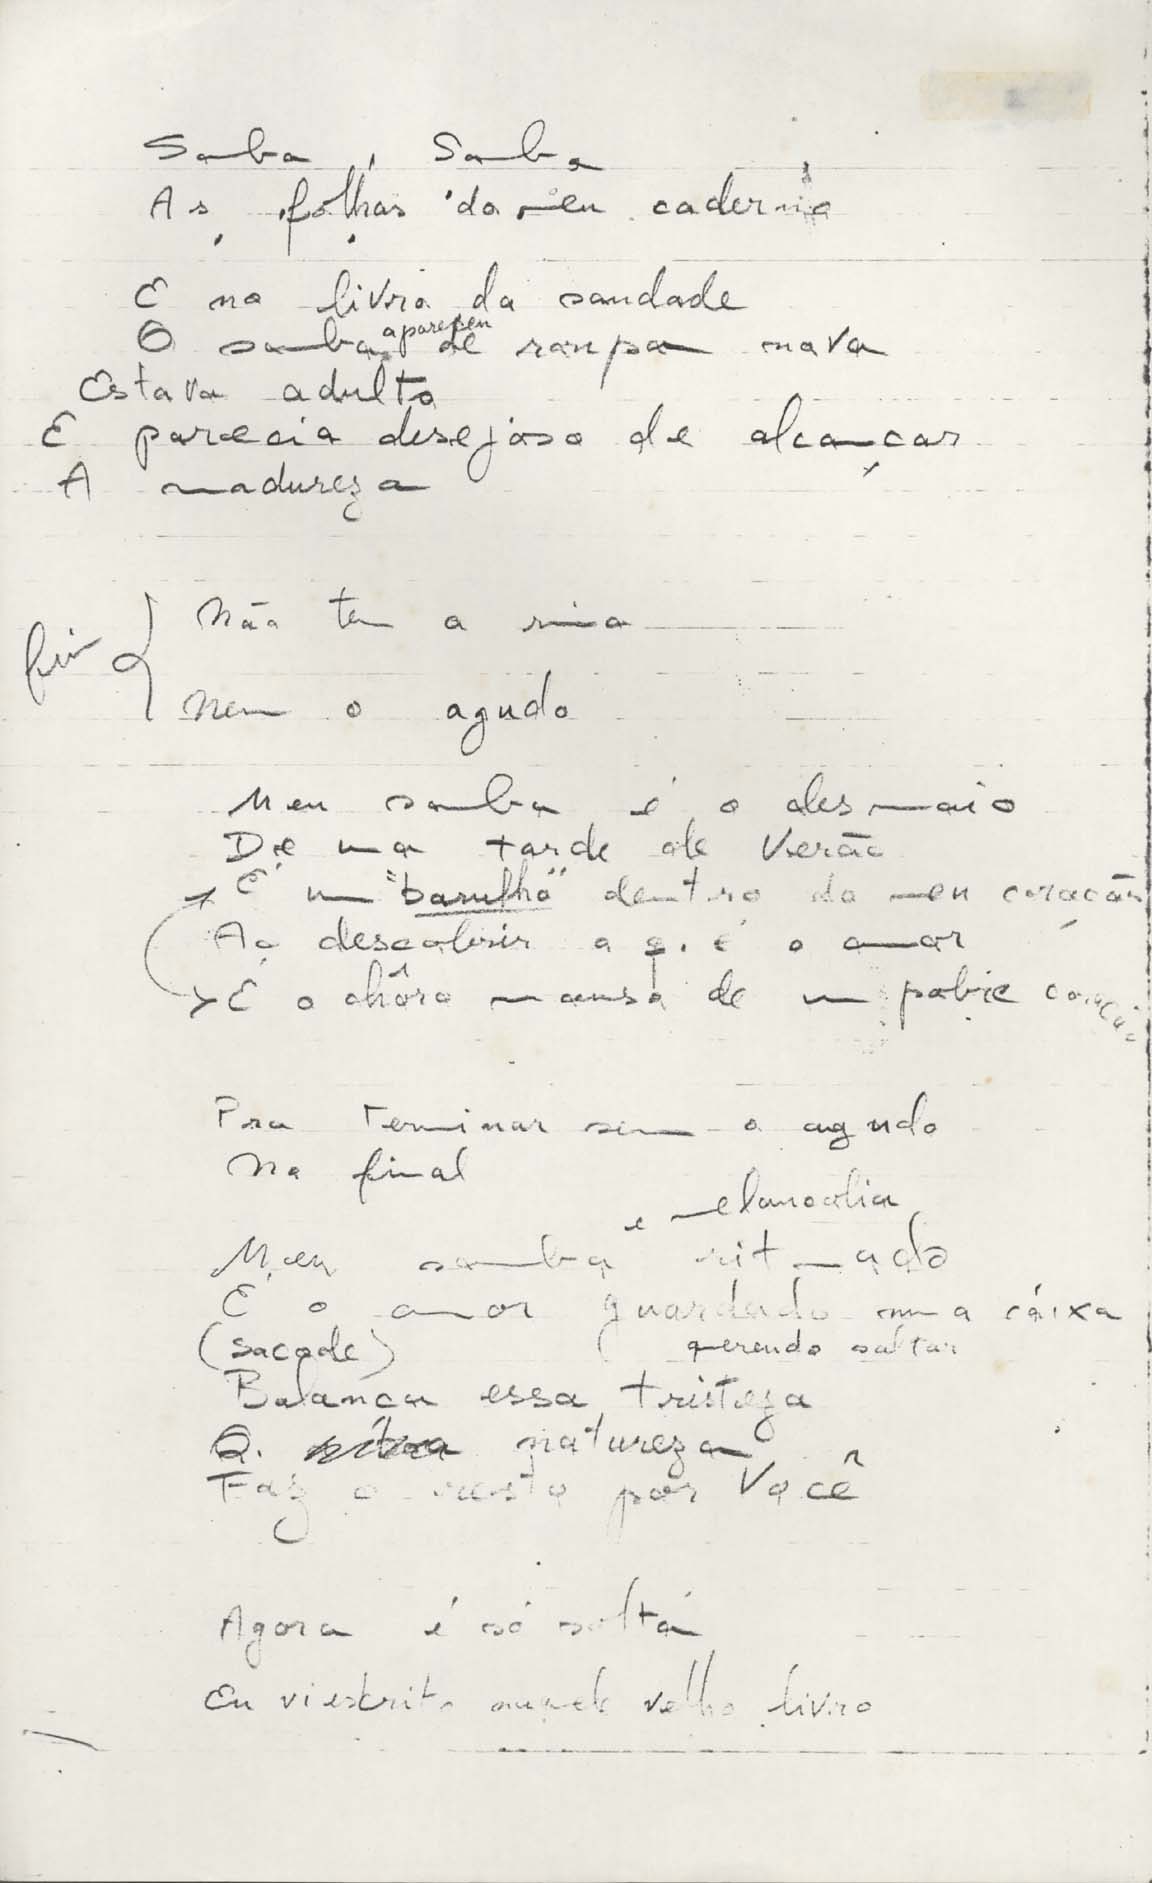 Samba, Samba
As folhas do meu caderno
E no livro da saudade
O samba apareceu de roupa nova
Estava adulto
E parecia desejoso de alcançar
A madureza
fim
Não tem a rima
Nem o agudo
Meu samba é o desmaio
De uma tarde de verão
É um "barulho" dentro do meu coração
Ao descobrir o q. é o amor
É o chôro manso de um pobre coração
Pra terminar sem o agudo
No final
é melancolia
Meu samba ritmado
É o amor guardado numa caixa
(sacode) ( querendo saltar
Balança essa tristeza
Q. natureza
Faz o resto por você
Agora é só soltá
Eu vi escrito naquele velho livro